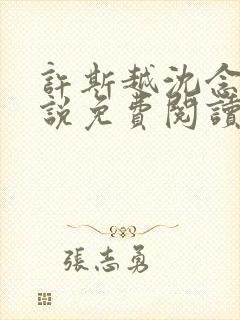 許斯越沈念
說免費閱讀
張志勇